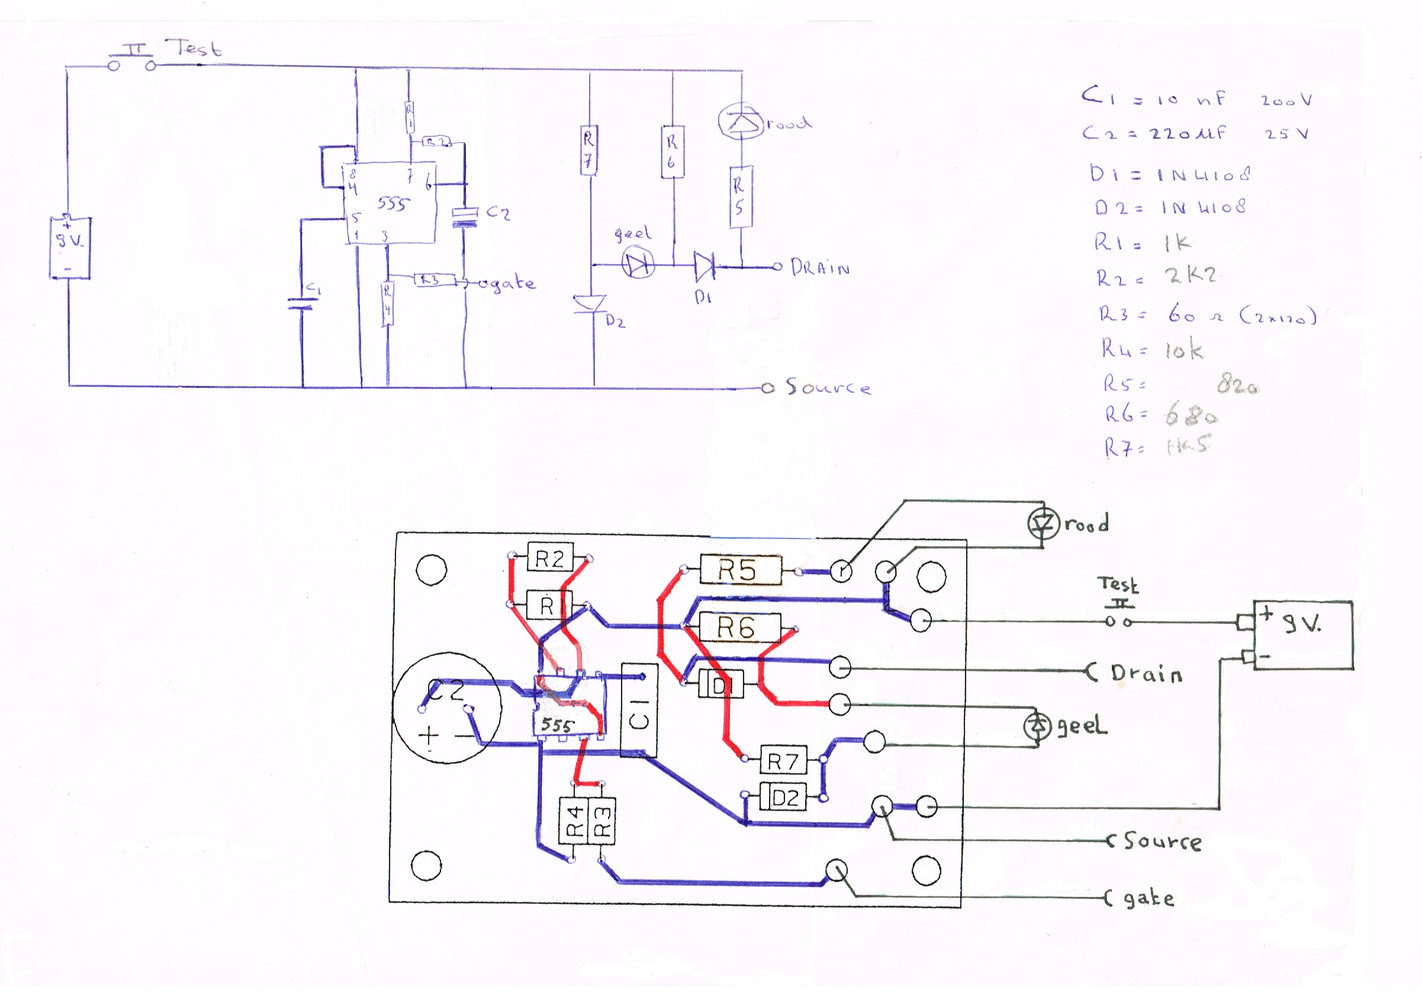 Test
R1
rood
R2
R7
R6
8
7
4
6
555
R5
5
C2
1
3
9V.
+
-
geel
DRAIN
R3
gate
C1
R4
D1
D2
Source
C1 = 10 nF 200V
C2 = 220 µF 25V
D1 = 1N4108
D2 = 1N4108
R1 = 1K
R2 = 2K2
R3 = 60 Ω (2x120)
R4 = 10K
R5 = 820
R6 = 680
R7 = 1K5
rood
R2
R5
Test
R
R6
+ 9V.
-
Drain
C2
D1
C1
555
geel
+ -
R7
D2
R4
R3
Source
gate